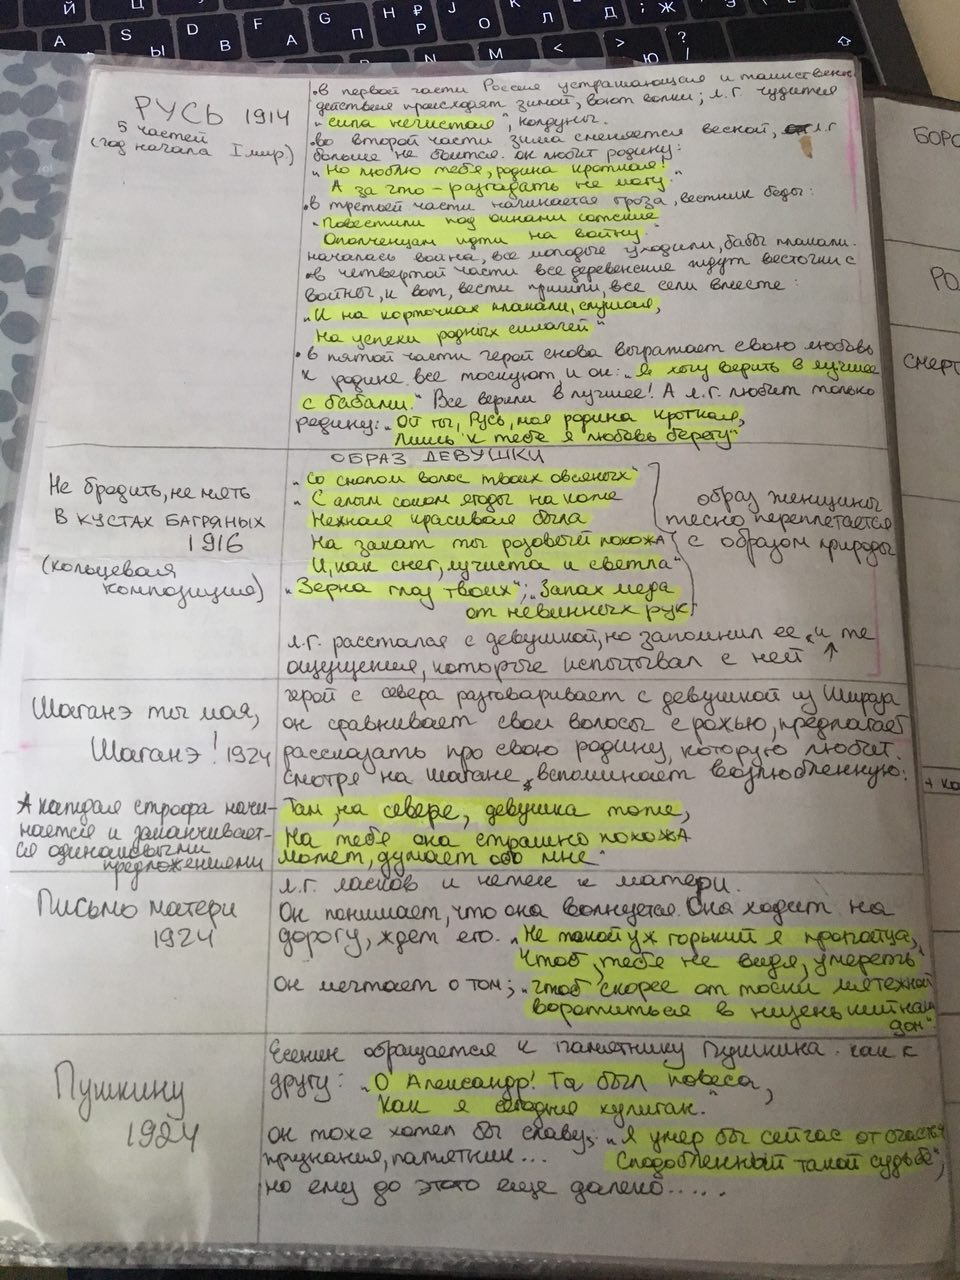 РУСЬ 1914
5 частей
(год начала I мир.)
• в первой части Россия устрашающая и таинственн
действия происходят зимой, воют волки; л.г чудится
"сила нечистая", колдуны.
• во второй части зима сменяется весной, л.г
больше не боится. он любит родину:
"Но люблю тебя, родина кроткая!
А за что – разгадать не могу."
• в третьей части начинается гроза, вестник беды:
"Повестили под окнами сотские
Ополченцам идти на войну."
началась война, все молодые уходили, бабы плакали.
• в четвертой части все деревенские ждут весточки с
войны, и вот, вести пришли, все сели вместе:
"И на корточках плакали, слушая,
На успехи родных силачей"
• в пятой части герой снова выражает свою любовь
к родине. все тоскуют и он: "Я хочу верить в лучшее
с бабами." Все верили в лучшее! А л.г. любит только
родину: "Ой ты, Русь, моя родина кроткая,
Лишь к тебе я любовь берегу"
Не бродить, не мять
В КУСТАХ БАГРЯНЫХ
1916
(кольцевая
композиция)
ОБРАЗ ДЕВУШКИ
"Со снопом волос твоих овсяных"
"С алым соком ягоды на коже
Нежная красивая была
На закат ты розовый похожа
И, как снег, лучиста и светла"
"Зерна глаз твоих"; "Запах меда
от невинных рук"
образ женщины
тесно переплетается
с образом природы
л.г. расстался с девушкой, но запомнил ее и те
ощущения, которые испытывал с ней ↑
Шаганэ ты моя,
Шаганэ! 1924
А каждая строфа начи-
нается и заканчивает-
ся одинаковыми
предложениями
герой с севера разговаривает с девушкой из Шираза
он сравнивает свои волосы с рожью, предлагает
рассказать про свою родину, которую любит.
смотря на Шаганэ, вспоминает возлюбленную:
"Там, на севере, девушка тоже,
На тебя она страшно похожа
Может, думает обо мне"
Письмо матери
1924
л.г. ласков и нежен к матери.
Он понимает, что она волнуется. Она ходит на
дорогу, ждет его. "Не такой уж горький я пропойца,
Чтоб, тебя не видя, умереть"
Он мечтает о том; "чтоб скорее от тоски мятежной
Воротиться в низенький наш
дом".
Пушкину
1924
Есенин обращается к памятнику Пушкина. как к
другу: "О Александр! Ты был повеса,
Как я сегодня хулиган."
он тоже хотел бы славу; "Я умер бы сейчас от счастья
признания, памятник... Сподобленный такой судьбе",
но ему до этого еще далеко.....
БОРО
РО
СМЕРТ
+ ко